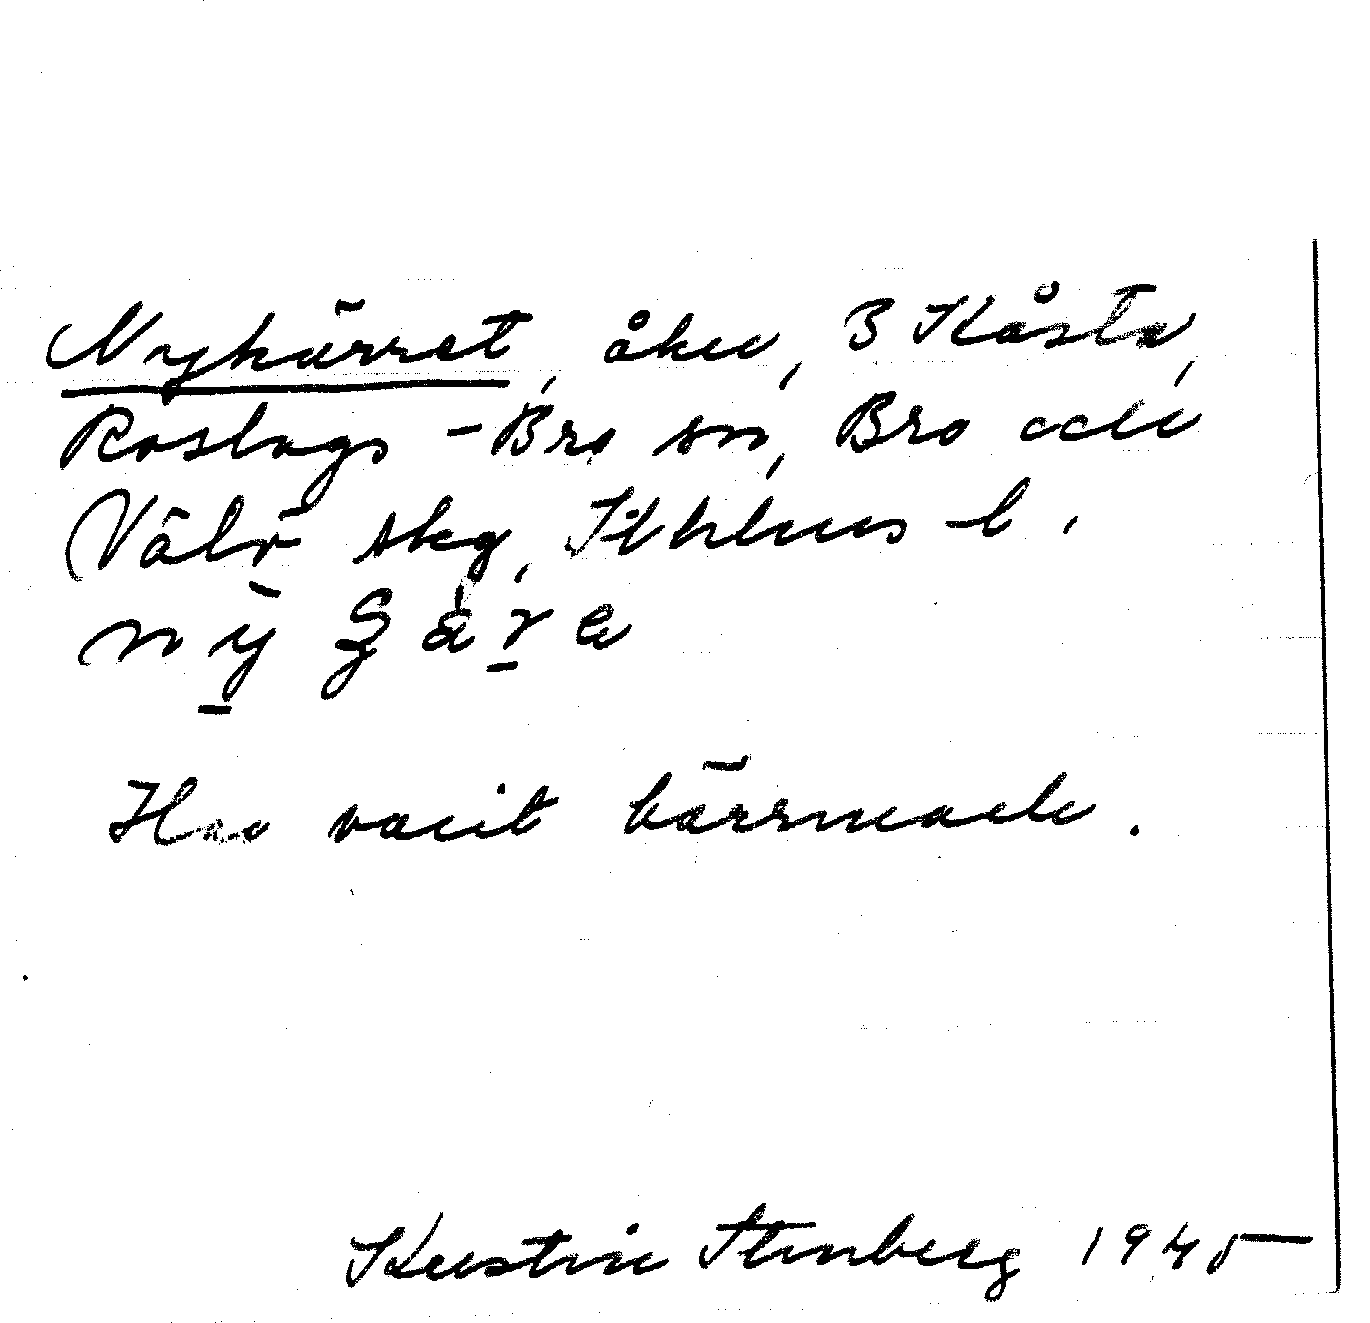 Nykärret, åker, 3 Kåsta,
Roslags-Bro sn, Bro och
Vätö skg, Sthlms l.
Har varit kärrmark.
Kerstin Stenberg 1945